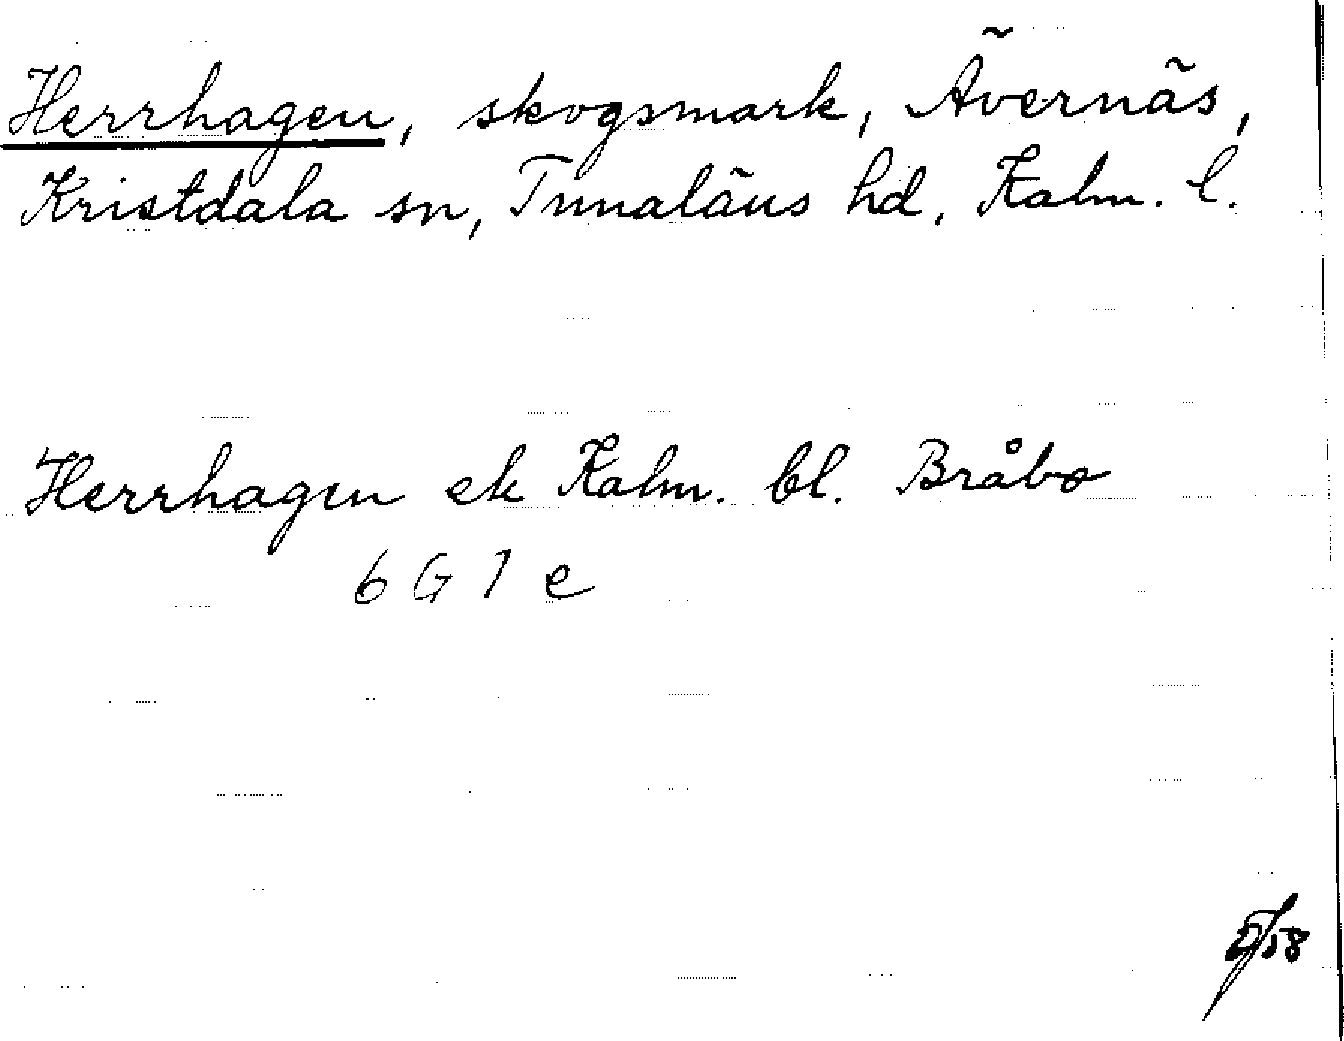 Herrhagen, skogsmark, Ävernäs,
Kristdala sn, Tunaläns hd, Kalm. l.
Herrhagen ek Kalm. bl. Bråbo
6 G 1 e